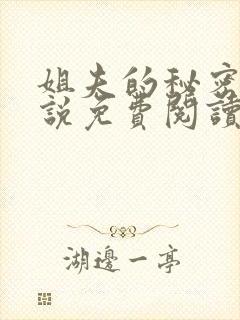 姐夫的秘密
説免費閱讀
湖邊一亭